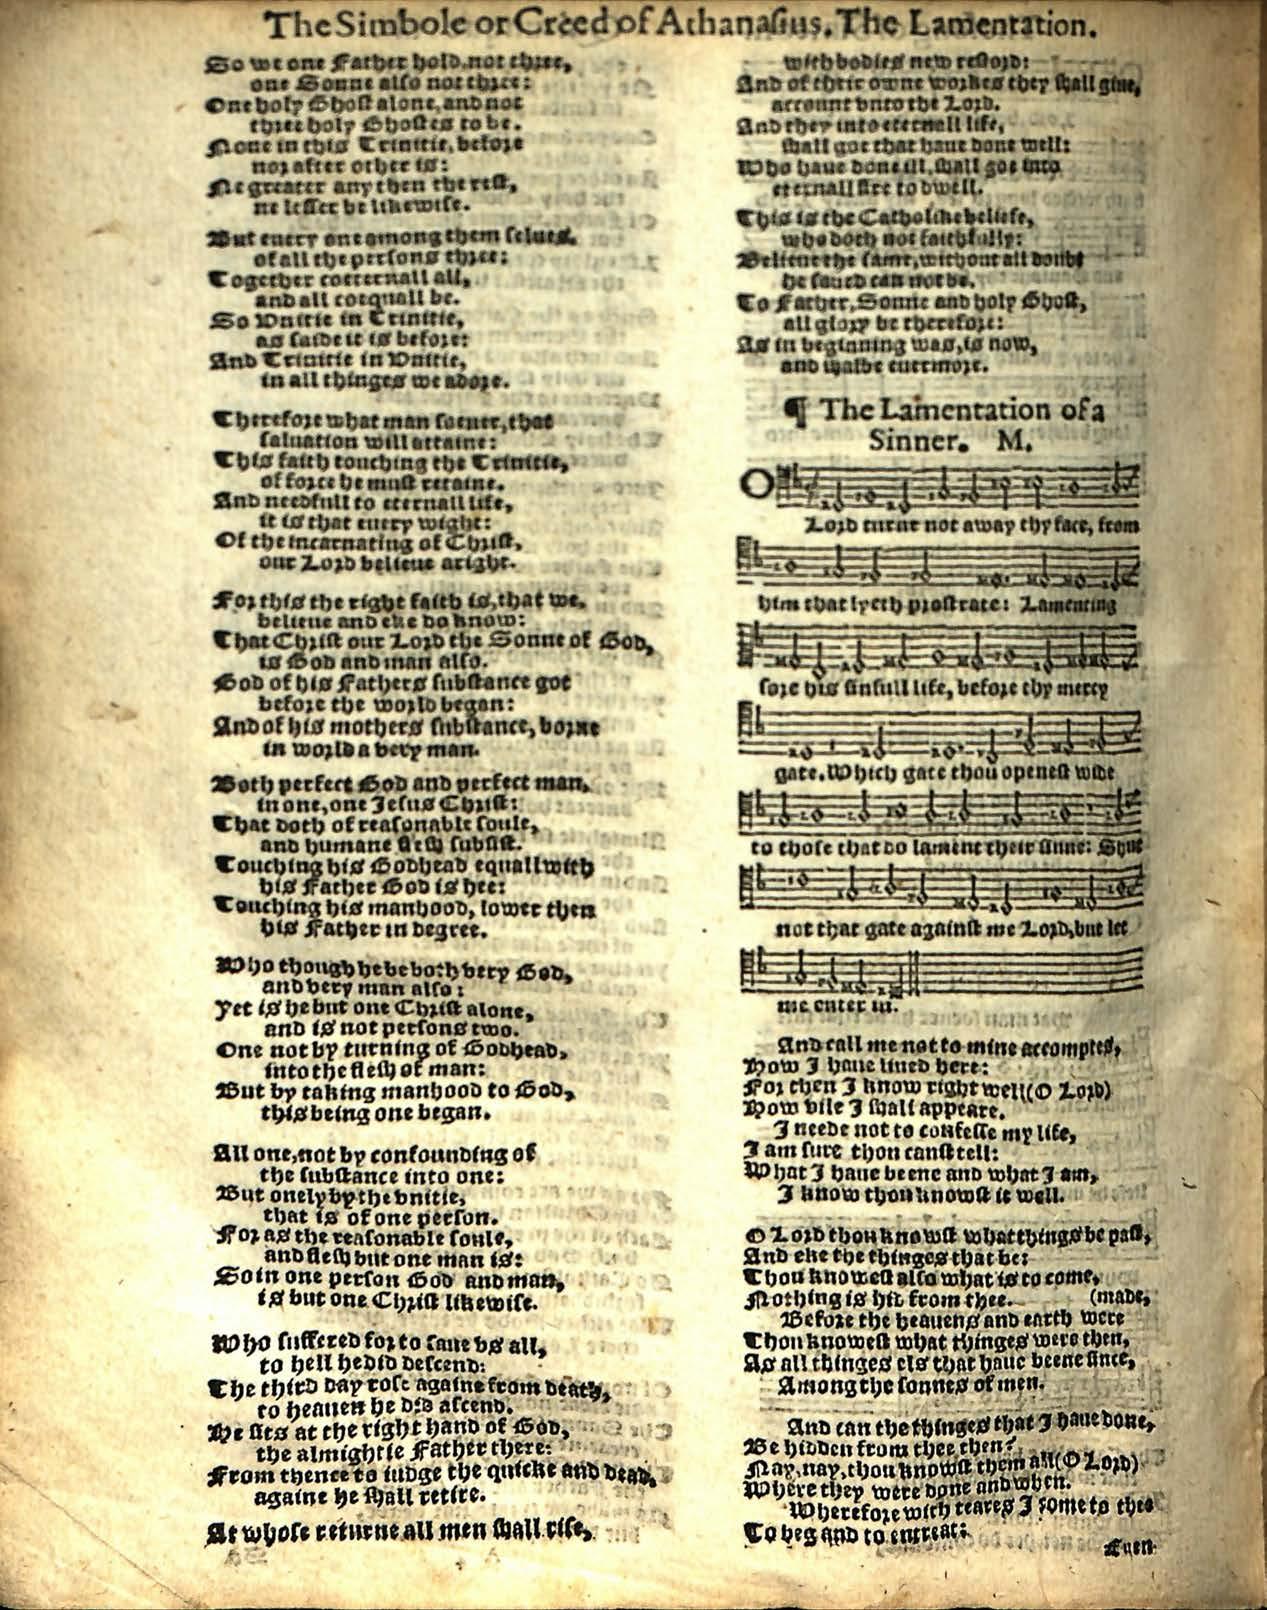 The Simbole or Creed of Athanasius. The Lamentation.
So we one Father hold, not three,
one Sonne also not three:
One holy Ghost alone, and not
three holy Ghostes to be.
None in this Trinitie, before
nor after other is:
Ne greater any then the rest,
ne lesser be likewise.
But euery one among them selues,
of all the persons three:
Together coeternall all,
and all coequall be.
So Vnitie in Trinitie,
as saide it is before:
And Trinitie in Vnitie,
in all thinges we adore.
Therefore what man soeuer, that
saluation will attaine:
This faith touching the Trinitie,
of force he must retaine.
And needfull to eternall life,
it is that euery wight:
Of the incarnating of Christ,
our Lord belieue aright.
For this the right faith is, that we,
belieue and eke do know:
That Christ our Lord the Sonne of God,
is God and man also.
God of his Fathers substance got
before the world began:
And of his mothers substance, borne
in world a very man.
Both perfect God and perfect man,
in one, one Jesus Christ:
That doth of reasonable soule,
and humane flesh subsist.
Touching his Godhead equall with
his Father God is hee:
Touching his manhood, lower then
his Father in degree.
Who though he be both very God,
and very man also:
Yet is he but one Christ alone,
and is not persons two.
One not by turning of Godhead,
into the flesh of man:
But by taking manhood to God,
this being one began.
All one, not by confounding of
the substance into one:
But onely by the vnitie,
that is of one person.
For as the reasonable soule,
and flesh but one man is:
So in one person God and man,
is but one Christ likewise.
Who suffered for to saue vs all,
to hell he did descend:
The third day rose againe from death,
to heauen he did ascend.
He sits at the right hand of God,
the almightie Father there:
From thence to iudge the quicke and dead,
againe he shall retire.
At whose returne all men shall rise,
with bodies new restord:
And of their owne workes they shall giue,
account vnto the Lord.
And they into eternall life,
shall goe that haue done well:
Who haue done ill, shall goe into
eternall fire to dwell.
This is the Catholike beliefe,
who doth not faithfully:
Belieue the same, without all doubt
he saued can not be.
To Father, Sonne and holy Ghost,
all glory be therefore:
As in beginning was, is now,
and shalbe euermore.
¶ The Lamentation of a
Sinner. M.
O
Lord turne not away thy face, from
him that lyeth prostrate: Lamenting
sore his sinfull life, before thy mercy
gate. Which gate thou openest wide
to those that do lament their sinne: Shut
not that gate against me Lord, but let
me enter in.
And call me not to mine accomptes,
How I haue liued here:
For then I know right well (O Lord)
How vile I shall appeare.
I neede not to confesse my life,
I am sure thou canst tell:
What I haue beene and what I am,
I know thou knowst it well.
O Lord thou knowst what things be past,
And eke the thinges that be:
Thou knowest also what is to come,
Nothing is hid from thee. (made,
Before the heauens and earth were
Thou knowest what thinges were then,
As all thinges els that haue beene since,
Among the sonnes of men.
And can the thinges that I haue done,
Be hidden from thee then?
Nay, nay, thou knowst them all (O Lord)
Where they were done and when.
Wherefore with teares I come to thee
To beg and to entreat:
Euen